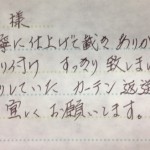 様
寧に仕上げて戴き ありが
り付け すっきり致しまし
りしていた カーテン返送
宜しくお願いします。